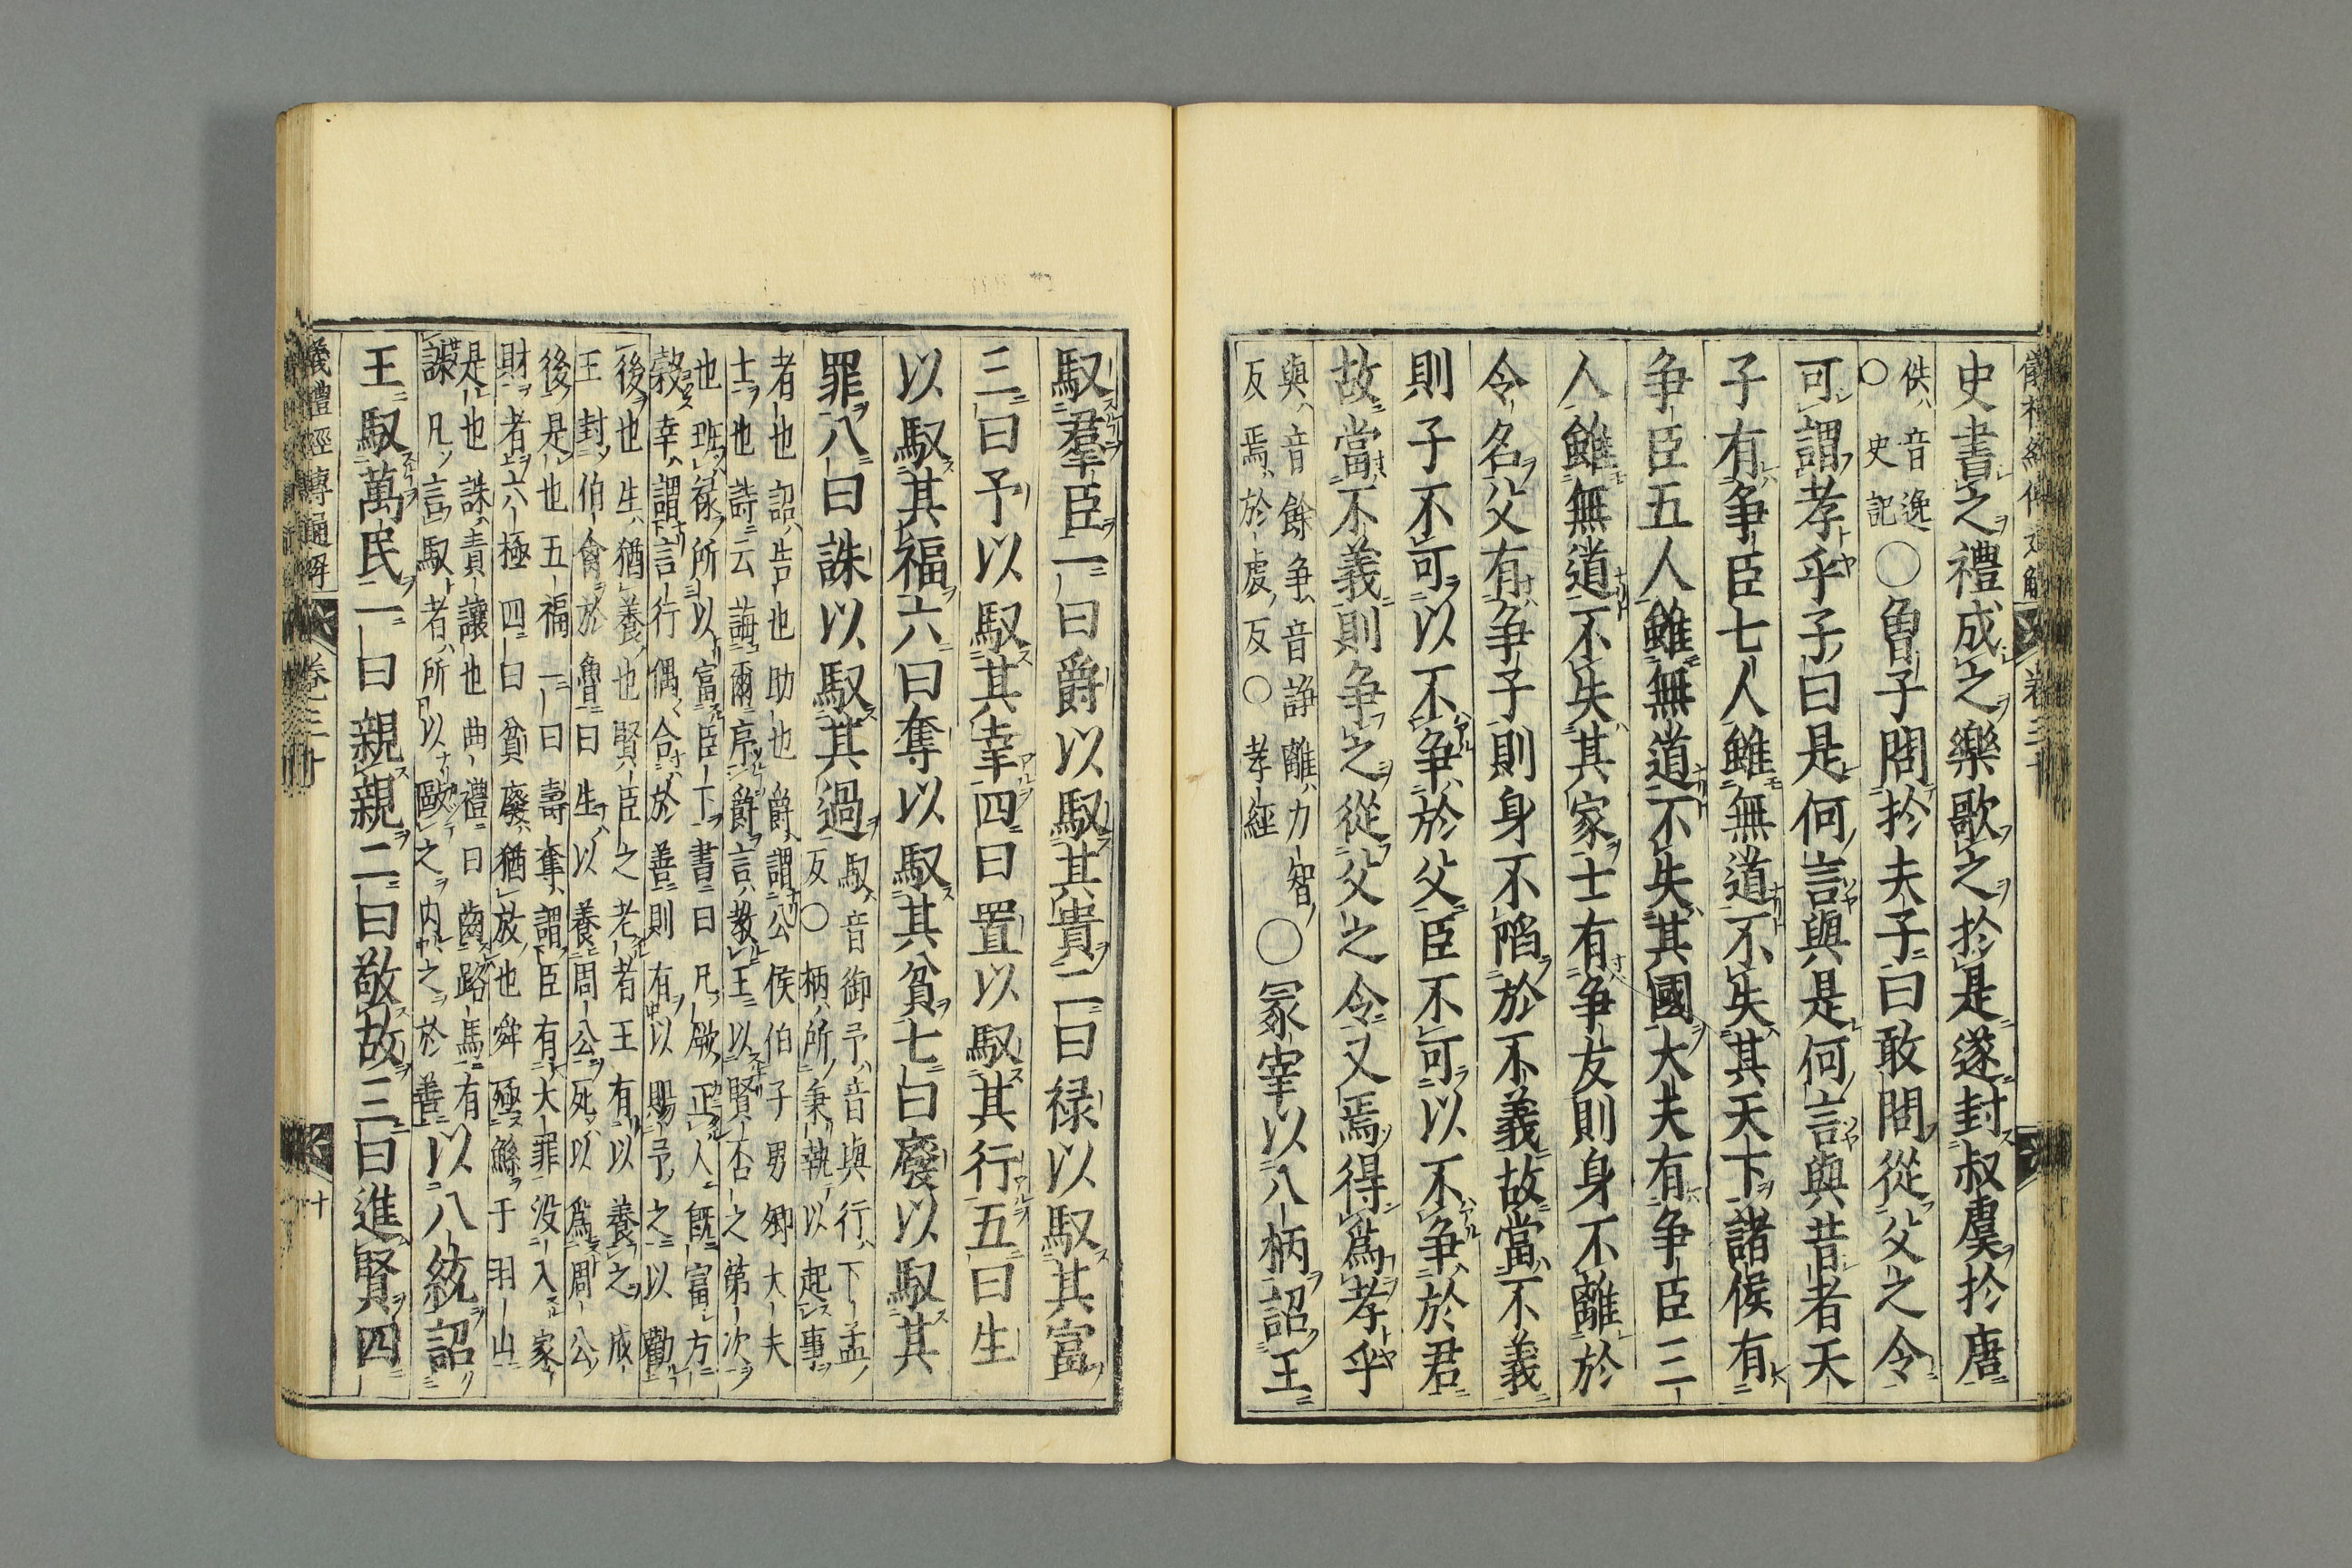 史書之禮成之樂歌之於是遂封叔虞於唐
佚音逸
○史記
○魯子問於夫子曰敢問從父之令
可謂孝乎子曰是何言與是何言與昔者天
子有爭臣七人雖無道不失其天下諸侯有
爭臣五人雖無道不失其國大夫有爭臣三
人雖無道不失其家士有爭友則身不離於
令名父有爭子則身不陷於不義故當不義
則子不可以不爭於父臣不可以不爭於君
故當不義則爭之從父之令又焉得爲孝乎
與音餘爭音諍離力智
反焉於虔反○孝經
○冢宰以八柄詔王
馭羣臣一曰爵以馭其貴二曰禄以馭其富
三曰予以馭其幸四曰置以馭其行五曰生
以馭其福六曰奪以馭其貧七曰廢以馭其
罪八曰誅以馭其過
馭音御予音與行下孟
反○柄所秉執以起事
者也詔告也助也爵謂公侯伯子男卿大夫
士也詩云誨爾序爵言教王以賢否之第次
也班禄所以富臣下書曰凡厥正人既富方
穀幸謂言行偶合於善則有以賜予之以勸
後也生猶養也賢臣之老者王有以養之成
王封伯禽於魯曰生以養周公死以爲周公
後是也五福一曰壽奪謂臣有大罪没入家
財者六極四曰貧廢猶放也舜殛鯀于羽山
是也誅責讓也曲禮曰齒路馬有
誅凡言馭者所以歐之内之於善
以八統詔
王馭萬民一曰親親二曰敬故三曰進賢四
儀禮經傳通解
卷三十
十